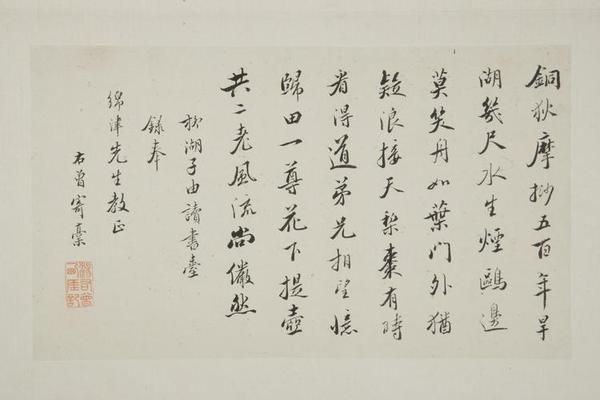 銅狄摩挱五百年旱
湖幾尺水生煙鷗邊
莫笑舟如葉門外猶
疑浪接天梨棗有時
看得道弟兄相望憶
歸田一尊花下提壺
共二老風流尚儼然
湖子由讀書臺
錄奉
綿津先生教正
右曾寄稾